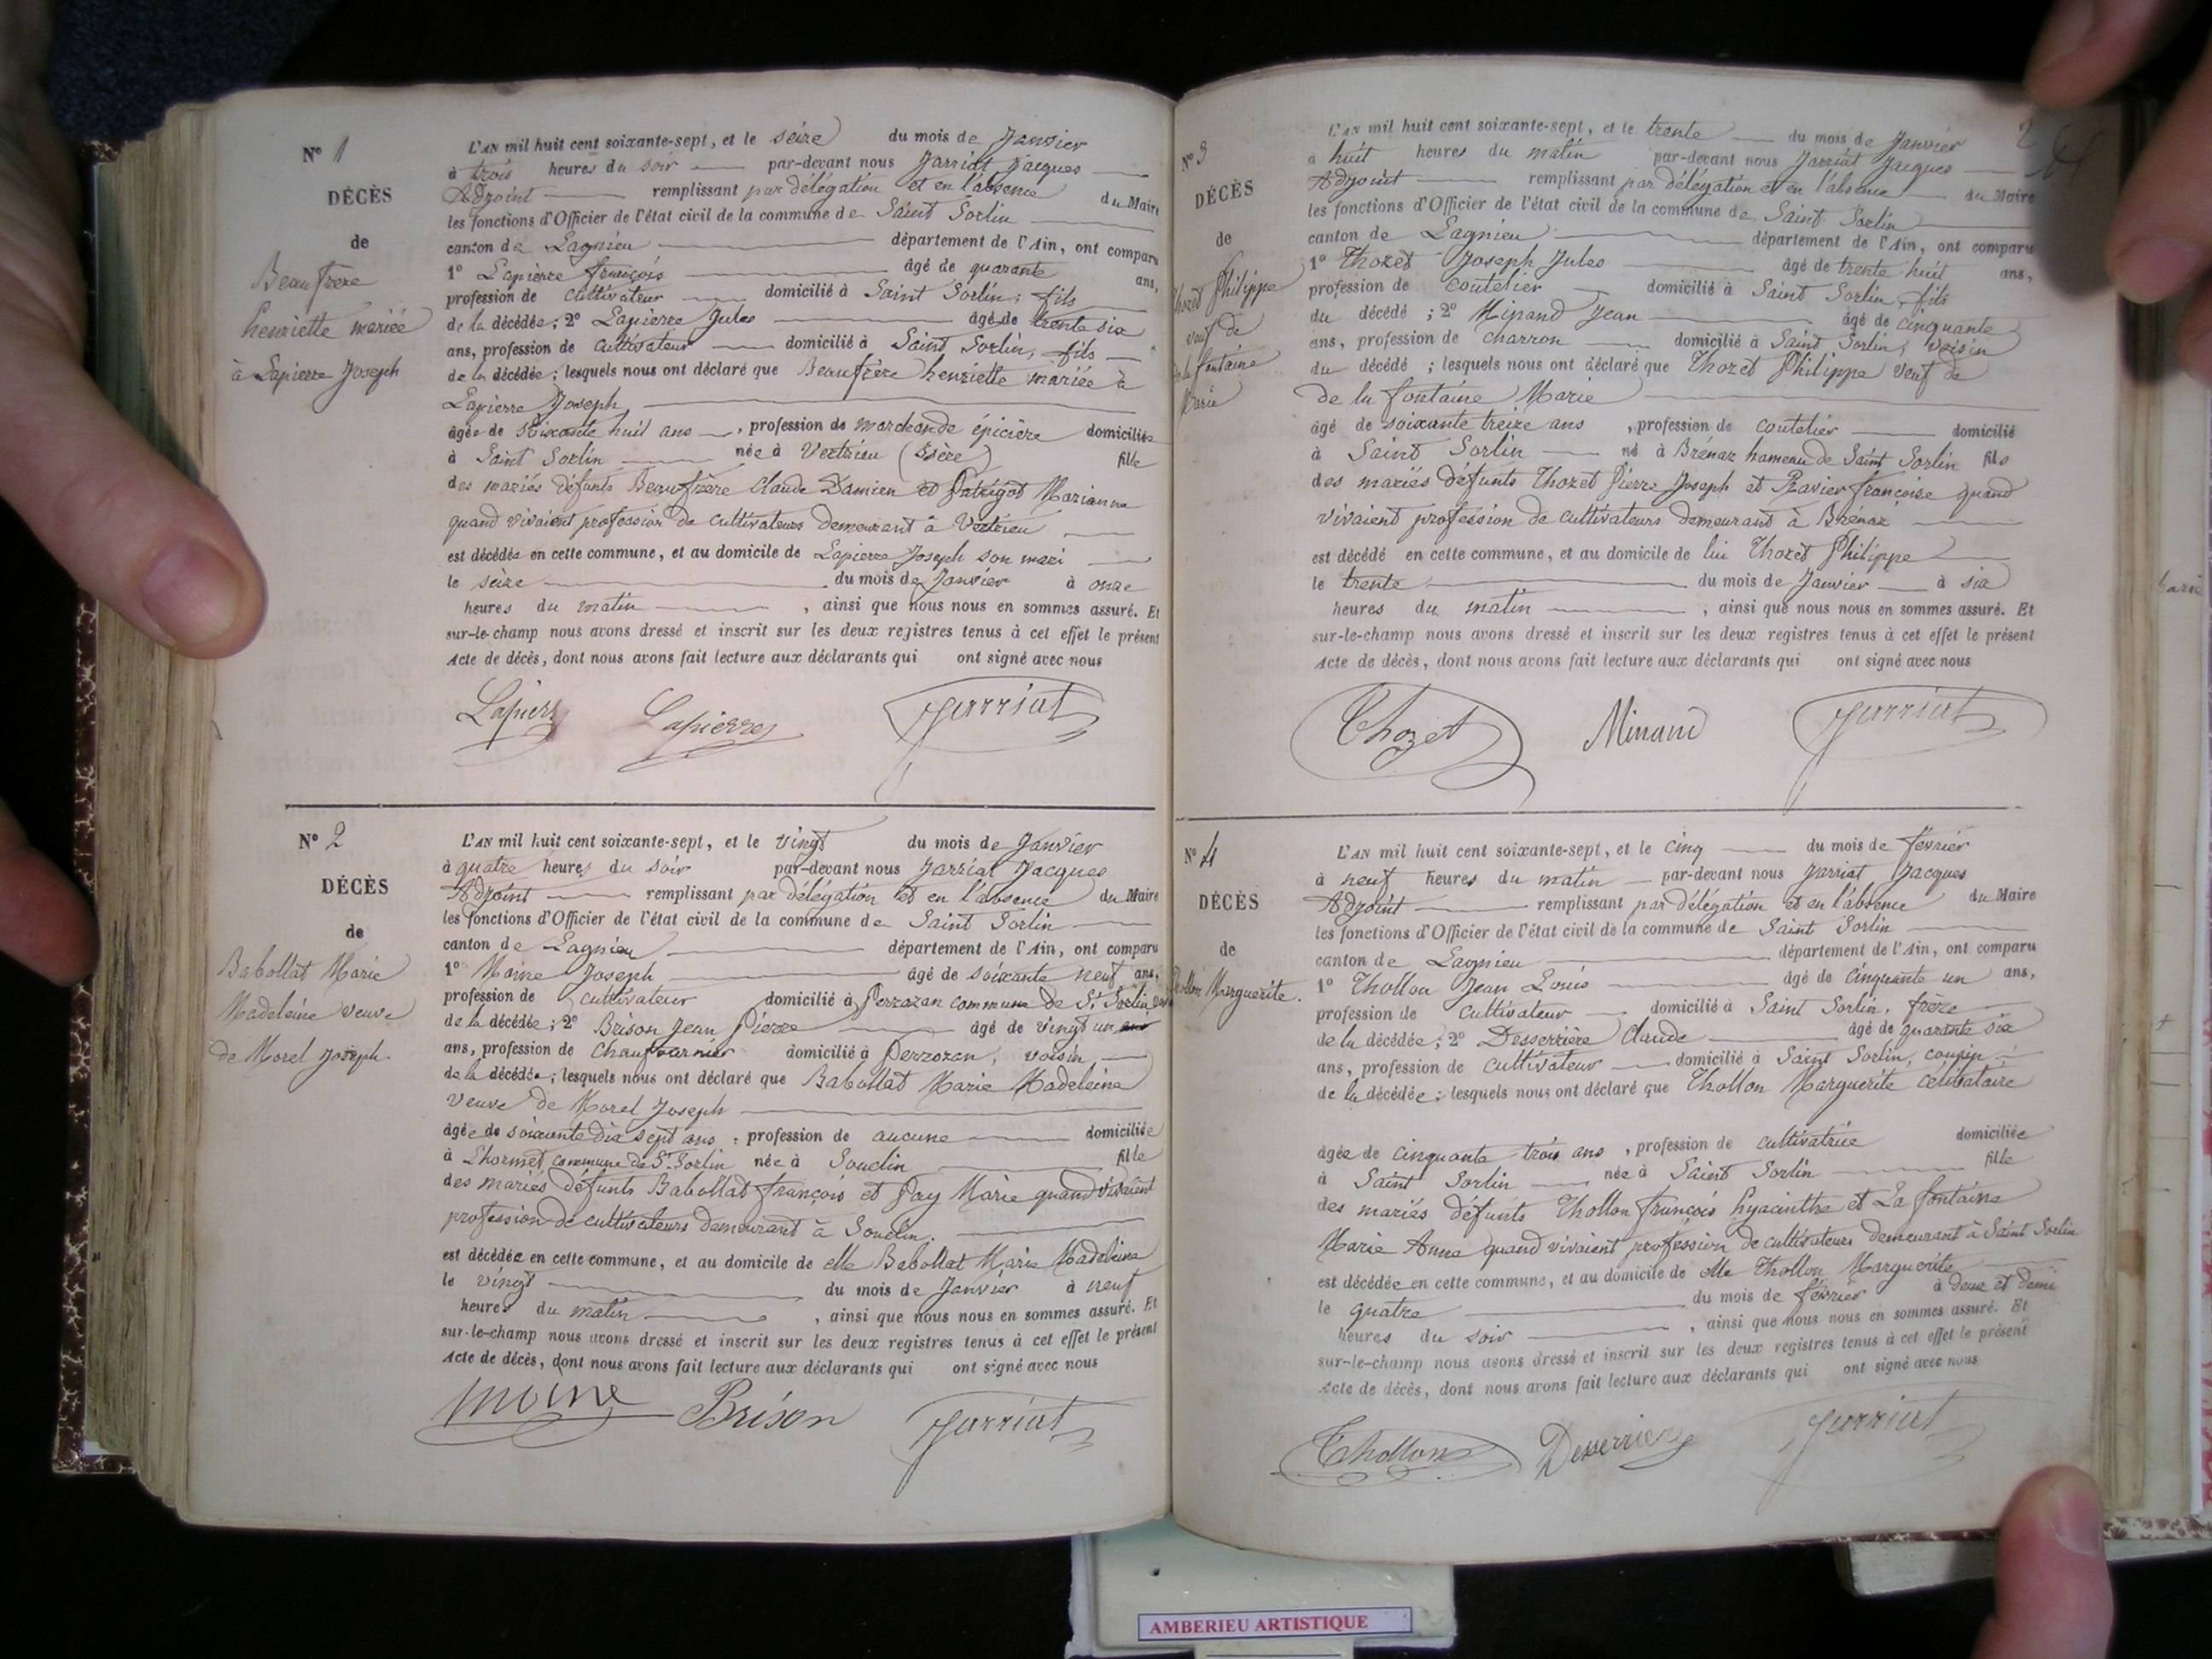 N° 1
DÉCÈS
de
Beaufrère
henriette mariée
à Lapierre Joseph
L'AN mil huit cent soixante-sept, et le seize du mois de Janvier
à trois heures du soir par-devant nous Jarriat Jacques
Adjoint remplissant par délégation et en l'absence du Maire
les fonctions d'Officier de l'état civil de la commune de Saint Sorlin
canton de Lagnieu département de l'Ain, ont comparu
1° Lapierre françois âgé de quarante ans,
profession de cultivateur domicilié à Saint Sorlin, fils
de la décédée; 2° Lapierre Jules âgé de trente six
ans, profession de cultivateur domicilié à Saint Sorlin, fils
de la décédée; lesquels nous ont déclaré que Beaufrère henriette mariée à
Lapierre Joseph
âgée de soixante huit ans, profession de marchande épicière domiciliée
à Saint Sorlin née à Vertrieu (Isère) fille
des mariés défunts Beaufrère Claude Damien et Patrigot Marianne
quand vivaient profession de cultivateurs demeurant à Vertrieu
est décédée en cette commune, et au domicile de Lapierre Joseph son mari
le seize du mois de Janvier à onze
heures du matin, ainsi que nous nous en sommes assuré. Et
sur-le-champ nous avons dressé et inscrit sur les deux registres tenus à cet effet le présent
Acte de décès, dont nous avons fait lecture aux déclarants qui ont signé avec nous
Lapierre Lapierre Jarriat
N° 2
DÉCÈS
de
Babollat Marie
Madeleine veuve
de Morel Joseph
L'AN mil huit cent soixante-sept, et le vingt du mois de Janvier
à quatre heures du soir par-devant nous Jarriat Jacques
Adjoint remplissant par délégation et en l'absence du Maire
les fonctions d'Officier de l'état civil de la commune de Saint Sorlin
canton de Lagnieu département de l'Ain, ont comparu
1° Moine Joseph âgé de soixante neuf ans,
profession de cultivateur domicilié à Perrozan commune de St Sorlin
de la décédée; 2° Brison Jean Pierre âgé de vingt un ans
ans, profession de chaufournier domicilié à Perrozan, voisin
de la décédée; lesquels nous ont déclaré que Babollat Marie Madeleine
veuve de Morel Joseph
âgée de soixante dix sept ans, profession de aucune domiciliée
à Lhormet commune de St Sorlin née à Souclin fille
des mariés défunts Babollat françois et Jay Marie quand vivaient
profession de cultivateurs demeurant à Souclin.
est décédée en cette commune, et au domicile de elle Babollat Marie Madeleine
le vingt du mois de Janvier à neuf
heures du matin, ainsi que nous nous en sommes assuré. Et
sur-le-champ nous avons dressé et inscrit sur les deux registres tenus à cet effet le présent
Acte de décès, dont nous avons fait lecture aux déclarants qui ont signé avec nous
moine Brison Jarriat
N° 3
DÉCÈS
de
Thozet Philippe
veuf de
de la fontaine
Marie
L'AN mil huit cent soixante-sept, et le trente du mois de Janvier
à huit heures du matin par-devant nous Jarriat Jacques
Adjoint remplissant par délégation et en l'absence du Maire
les fonctions d'Officier de l'état civil de la commune de Saint Sorlin
canton de Lagnieu département de l'Ain, ont comparu
1° Thozet Joseph Jules âgé de trente huit ans,
profession de coutelier domicilié à Saint Sorlin, fils
du décédé; 2° Minand Jean âgé de cinquante
ans, profession de charron domicilié à Saint Sorlin, voisin
du décédé; lesquels nous ont déclaré que Thozet Philippe veuf de
de la fontaine Marie
âgé de soixante treize ans, profession de coutelier domicilié
à Saint Sorlin né à Brénaz hameau de Saint Sorlin fils
des mariés défunts Thozet Pierre Joseph et Ravier françoise quand
vivaient profession de cultivateurs demeurant à Brénaz
est décédé en cette commune, et au domicile de lui Thozet Philippe
le trente du mois de Janvier à six
heures du matin, ainsi que nous nous en sommes assuré. Et
sur-le-champ nous avons dressé et inscrit sur les deux registres tenus à cet effet le présent
Acte de décès, dont nous avons fait lecture aux déclarants qui ont signé avec nous
Thozet Minand Jarriat
N° 4
DÉCÈS
de
Thollon Marguerite.
L'AN mil huit cent soixante-sept, et le cinq du mois de février
à neuf heures du matin par-devant nous Jarriat Jacques
Adjoint remplissant par délégation et en l'absence du Maire
les fonctions d'Officier de l'état civil de la commune de Saint Sorlin
canton de Lagnieu département de l'Ain, ont comparu
1° Thollon Jean Louis âgé de cinquante un ans,
profession de cultivateur domicilié à Saint Sorlin, frère
de la décédée; 2° Desserrière Claude âgé de quarante six
ans, profession de cultivateur domicilié à Saint Sorlin, cousin
de la décédée; lesquels nous ont déclaré que Thollon Marguerite célibataire
âgée de cinquante trois ans, profession de cultivatrice domiciliée
à Saint Sorlin née à Saint Sorlin fille
des mariés défunts Thollon françois hyacinthe et La fontaine
Marie Anne quand vivaient profession de cultivateurs demeurant à Saint Sorlin
est décédée en cette commune, et au domicile de elle Thollon Marguerite
le quatre du mois de février à deux et demi
heures du soir, ainsi que nous nous en sommes assuré. Et
sur-le-champ nous avons dressé et inscrit sur les deux registres tenus à cet effet le présent
Acte de décès, dont nous avons fait lecture aux déclarants qui ont signé avec nous
Thollon Desserrière Jarriat
AMBERIEU ARTISTIQUE